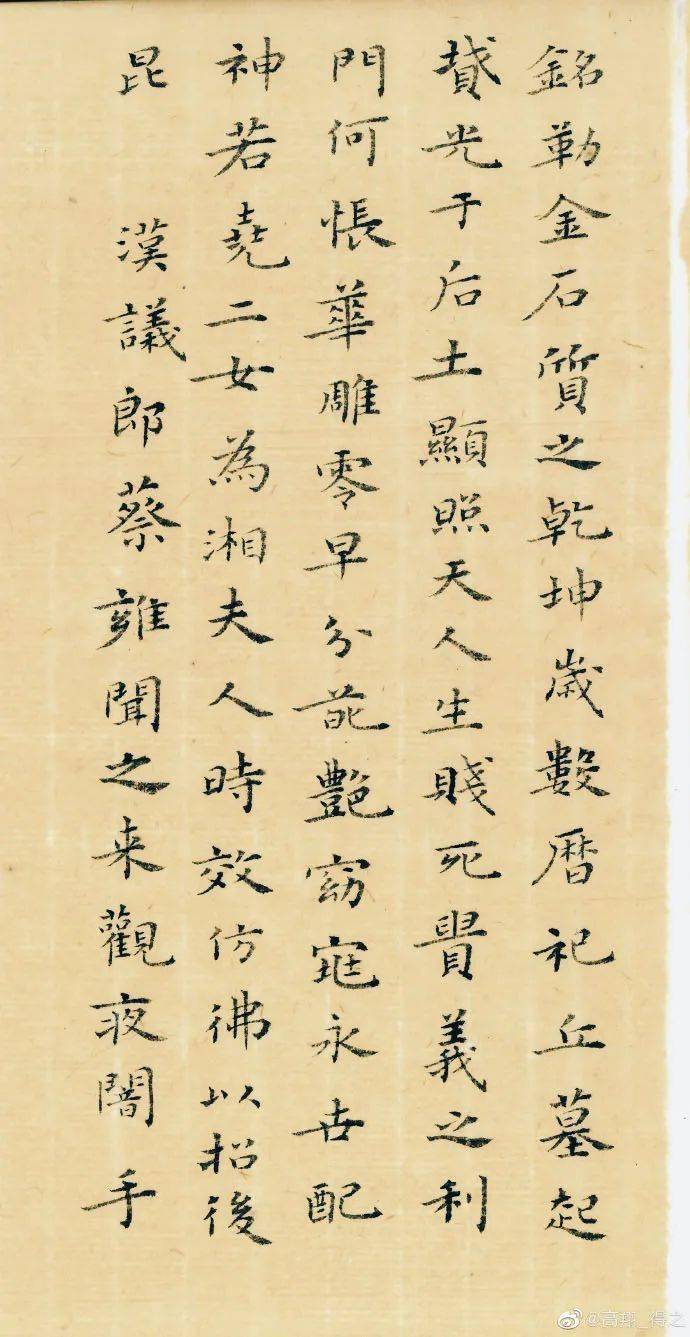 銘勒金石質之乾坤歲數曆祀丘墓起
賁光于后土顯照天人生賤死貴義之利
門何悵華雕零早分葩艷窈窕永世配
神若堯二女為湘夫人時效仿彿以招後
昆 漢議郎蔡雍聞之来觀夜闇手
@高翔_得之